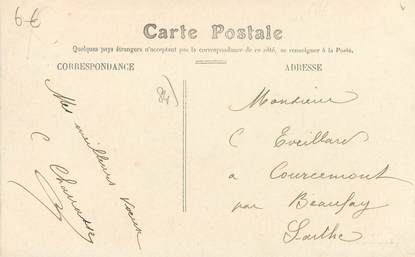 6€
Carte Postale
Quelques pays étrangers n'acceptant pas la correspondance de ce côté, se renseigner à la Poste.
CORRESPONDANCE
ADRESSE
Mes meilleurs vœux
C
Monsieur
C Eveillard
a Courcemont
par Beaufay
Sarthe